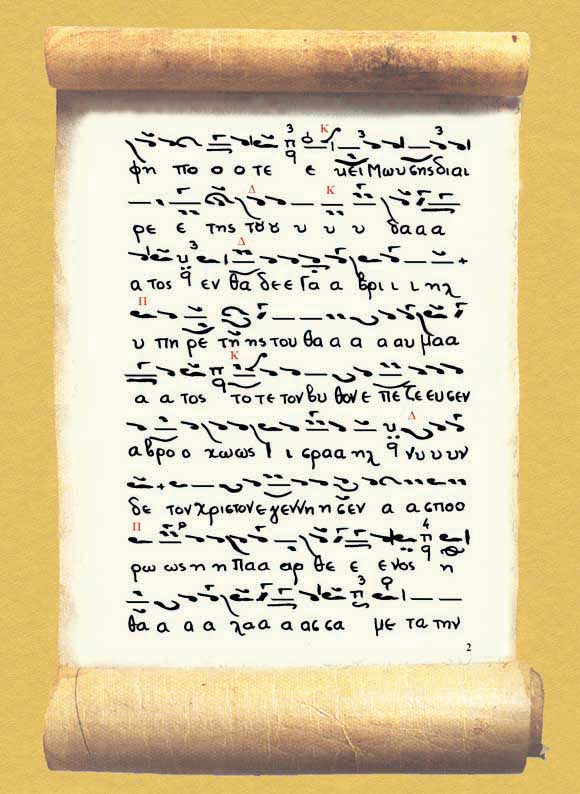 Κ
φη πο ο ο τε ε κεί Μωυσης διαι
Δ Κ
ρε ε της τȣ ȣ υ υ υ δα α α
Δ
α τος εν θα δε ε Γα α βρι ι ι ηλ
Π
υ πη ρε τη ης του θα α α α αυ μα α
Κ
α α τος το τε τον βυ θον ε πε ζε ευ σεν
Δ
α βρο ο χω ως Ι ι σρα α ηλ νυ υ υν
δε τον χριστον ε γεν νη η σεν α α σπο ο
Π
ρω ως η η Πα α αρ θε ε ε νος η
θα α α α λα α α ασ σα με τα την
2